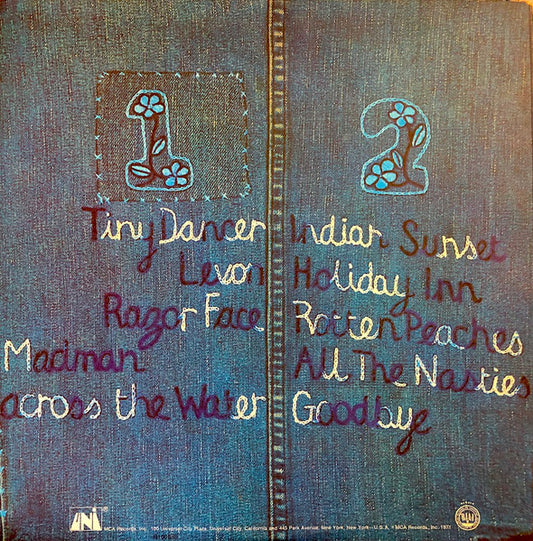 1
Tiny Dancer
Levon
Razor Face
Madman
across the Water
2
Indian Sunset
Holiday Inn
Rotten Peaches
All The Nasties
Goodbye
UNI
MCA Records, Inc. 100 Universal City Plaza, Universal City, California and 445 Park Avenue, New York, New York—U.S.A. ©MCA Records, Inc. 1971